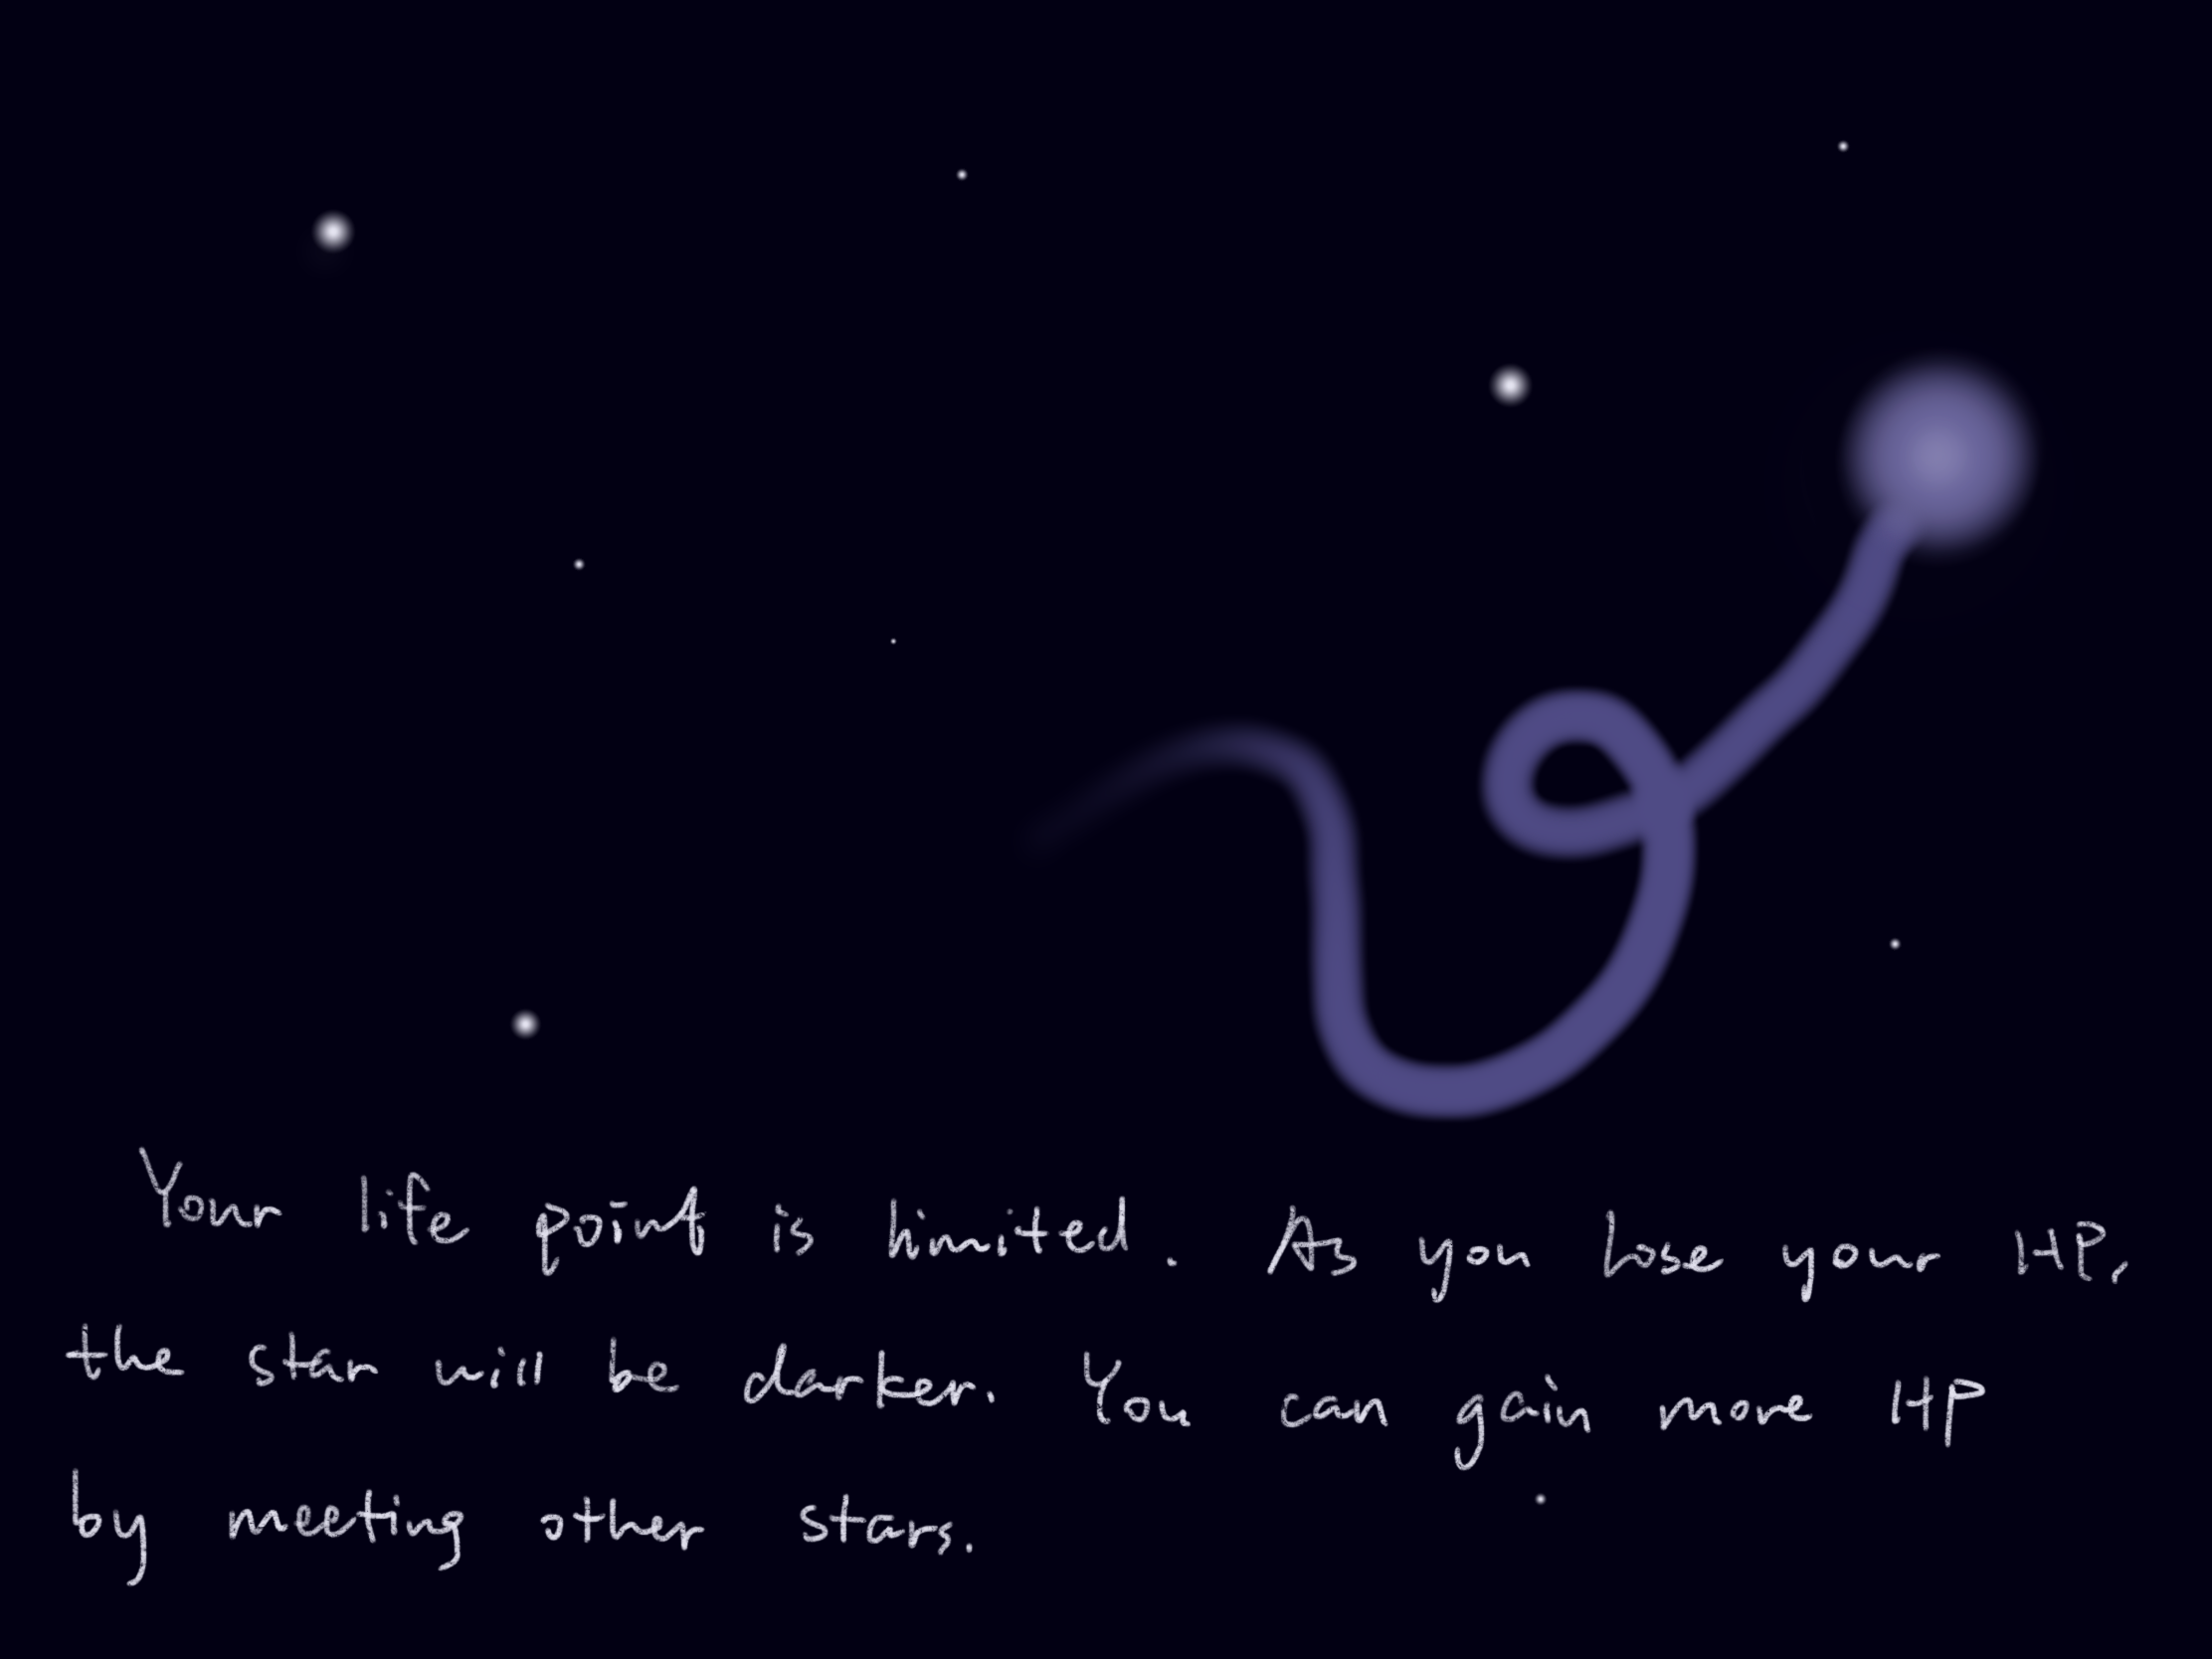 Your life point is limited. As you lose your HP,
the star will be darker. You can gain more HP
by meeting other stars.